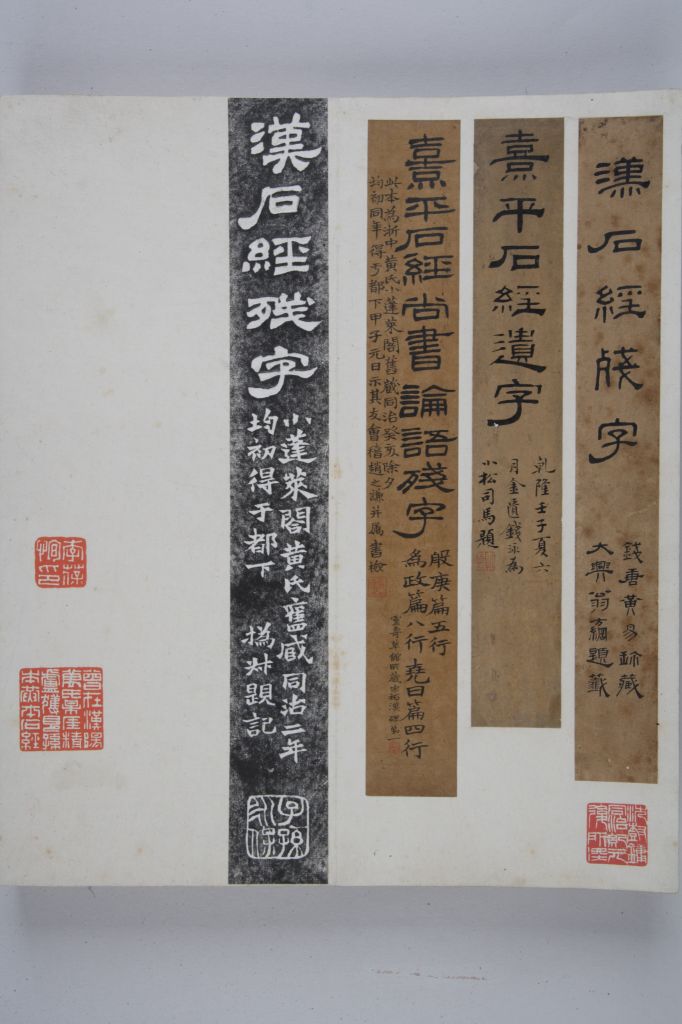 漢石經殘字
錢唐黃易珍藏
大興翁方綱題籤
熹平石經遺字
乾隆壬子夏六
月金匱錢泳為
小松司馬題
熹平石經尚書論語殘字
般庚篇五行
為政篇八行堯曰篇四行
此本為浙中黃氏小蓬萊閣舊藏同治癸亥除夕
均初同年得于都下甲子元日示其友會稽趙之謙并屬書檢
漢石經殘字
小蓬萊閣黃氏舊藏同治二年
均初得于都下 撝叔題記
子孫永保